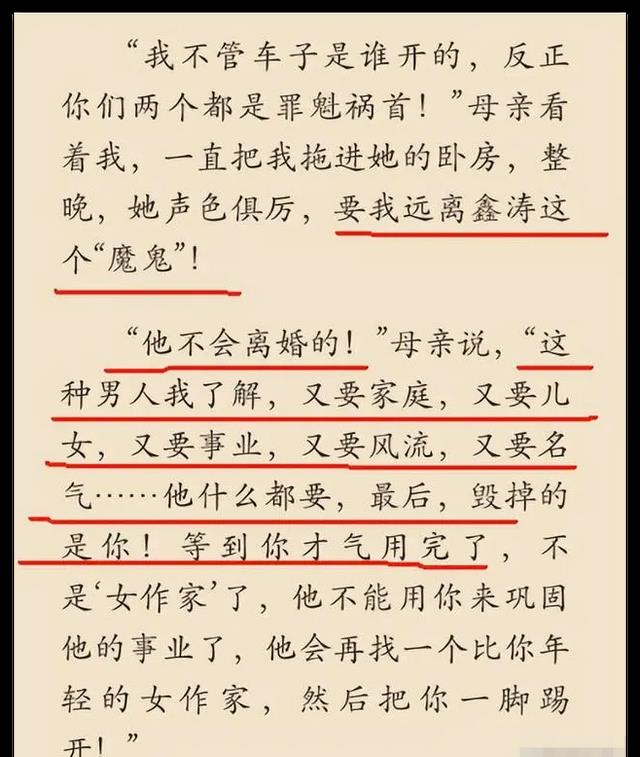 “我不管车子是谁开的，反正
你们两个都是罪魁祸首！”母亲看
着我，一直把我拖进她的卧房，整
晚，她声色俱厉，要我远离鑫涛这
个“魔鬼”！
“他不会离婚的！”母亲说，“这
种男人我了解，又要家庭，又要儿
女，又要事业，又要风流，又要名
气……他什么都要，最后，毁掉的
是你！等到你才气用完了，不
是‘女作家’了，他不能用你来巩固
他的事业了，他会再找一个比你年
轻的女作家，然后把你一脚踢
开！”